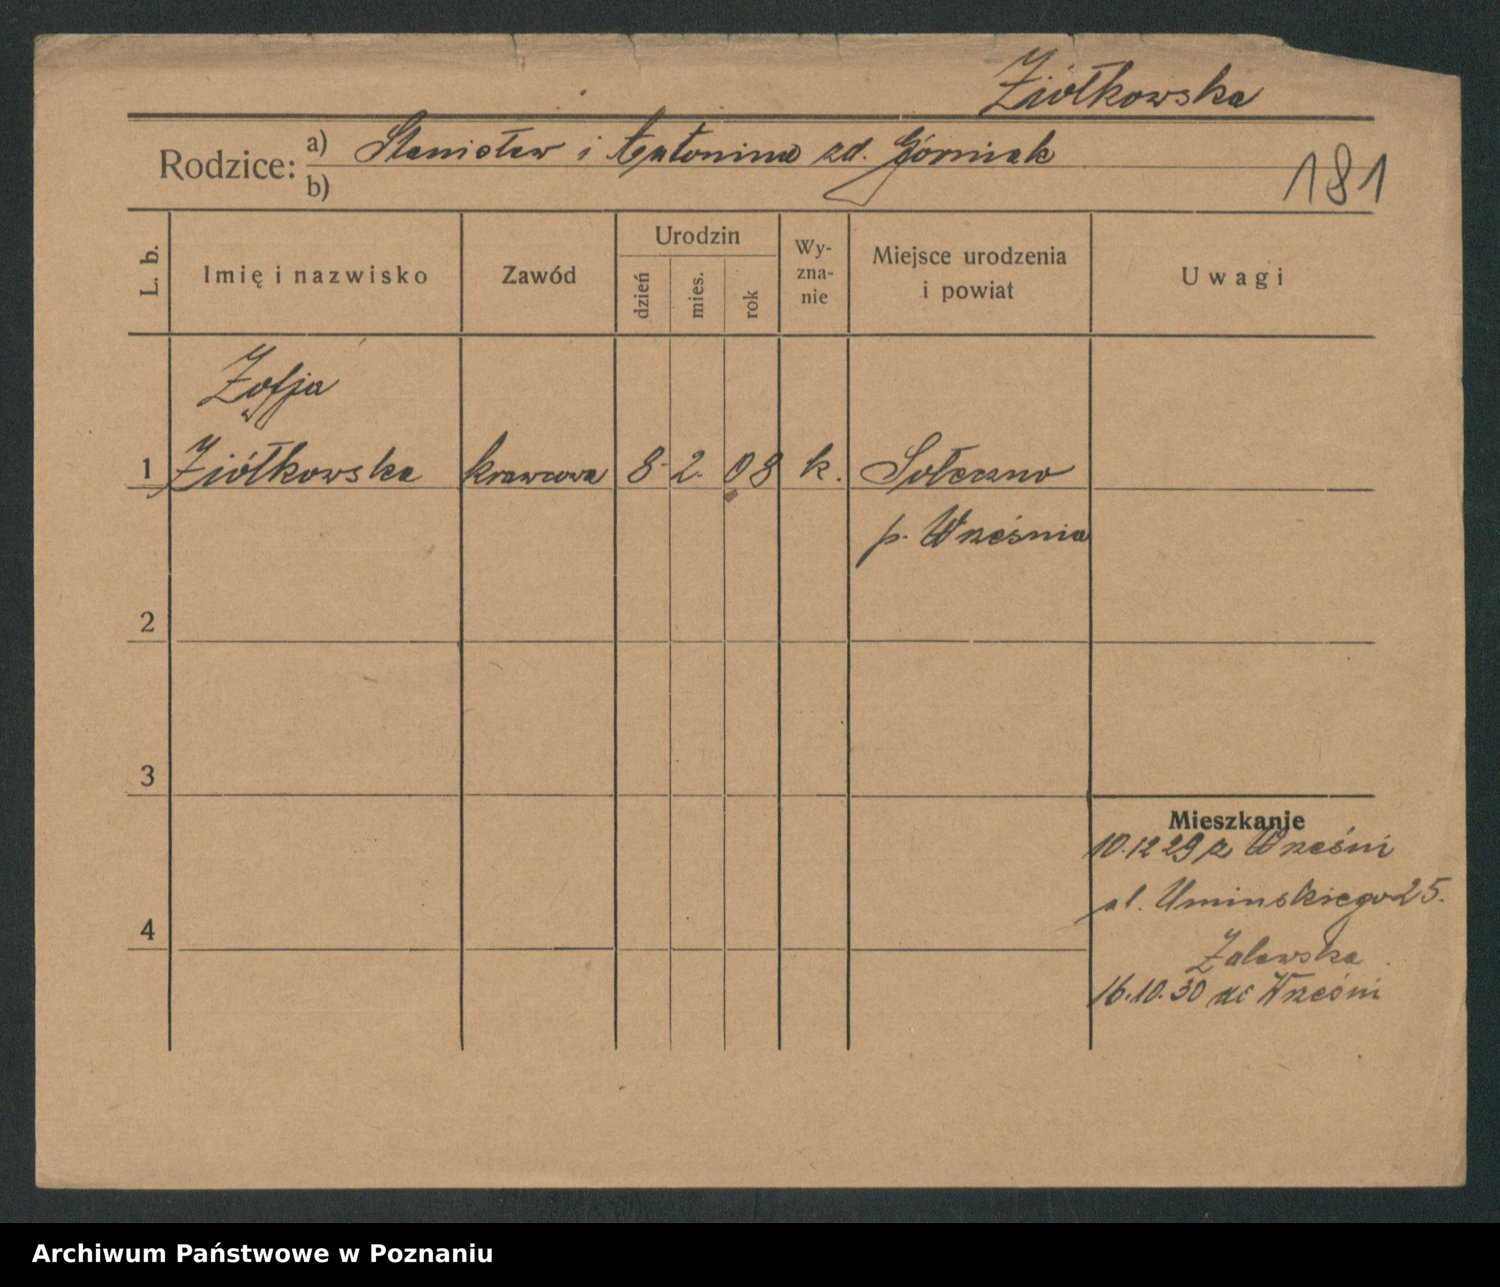 Ziółkowska
Rodzice: a) Stanisław i Antonina zd. Górniak
b)
181
L. b.
Imię i nazwisko
Zawód
Urodzin
dzień
mies.
rok
Wy-
zna-
nie
Miejsce urodzenia
i powiat
Uwagi
Zofja
1 Ziółkowska krawcowa 8. 2. 08 k. Sołeczno
p. Września
2
3
4
Mieszkanie
10.12 29 z Wrześni
ul. Umińskiego 25.
Zalewska
16.10.30 do Wrześni
Archiwum Państwowe w Poznaniu